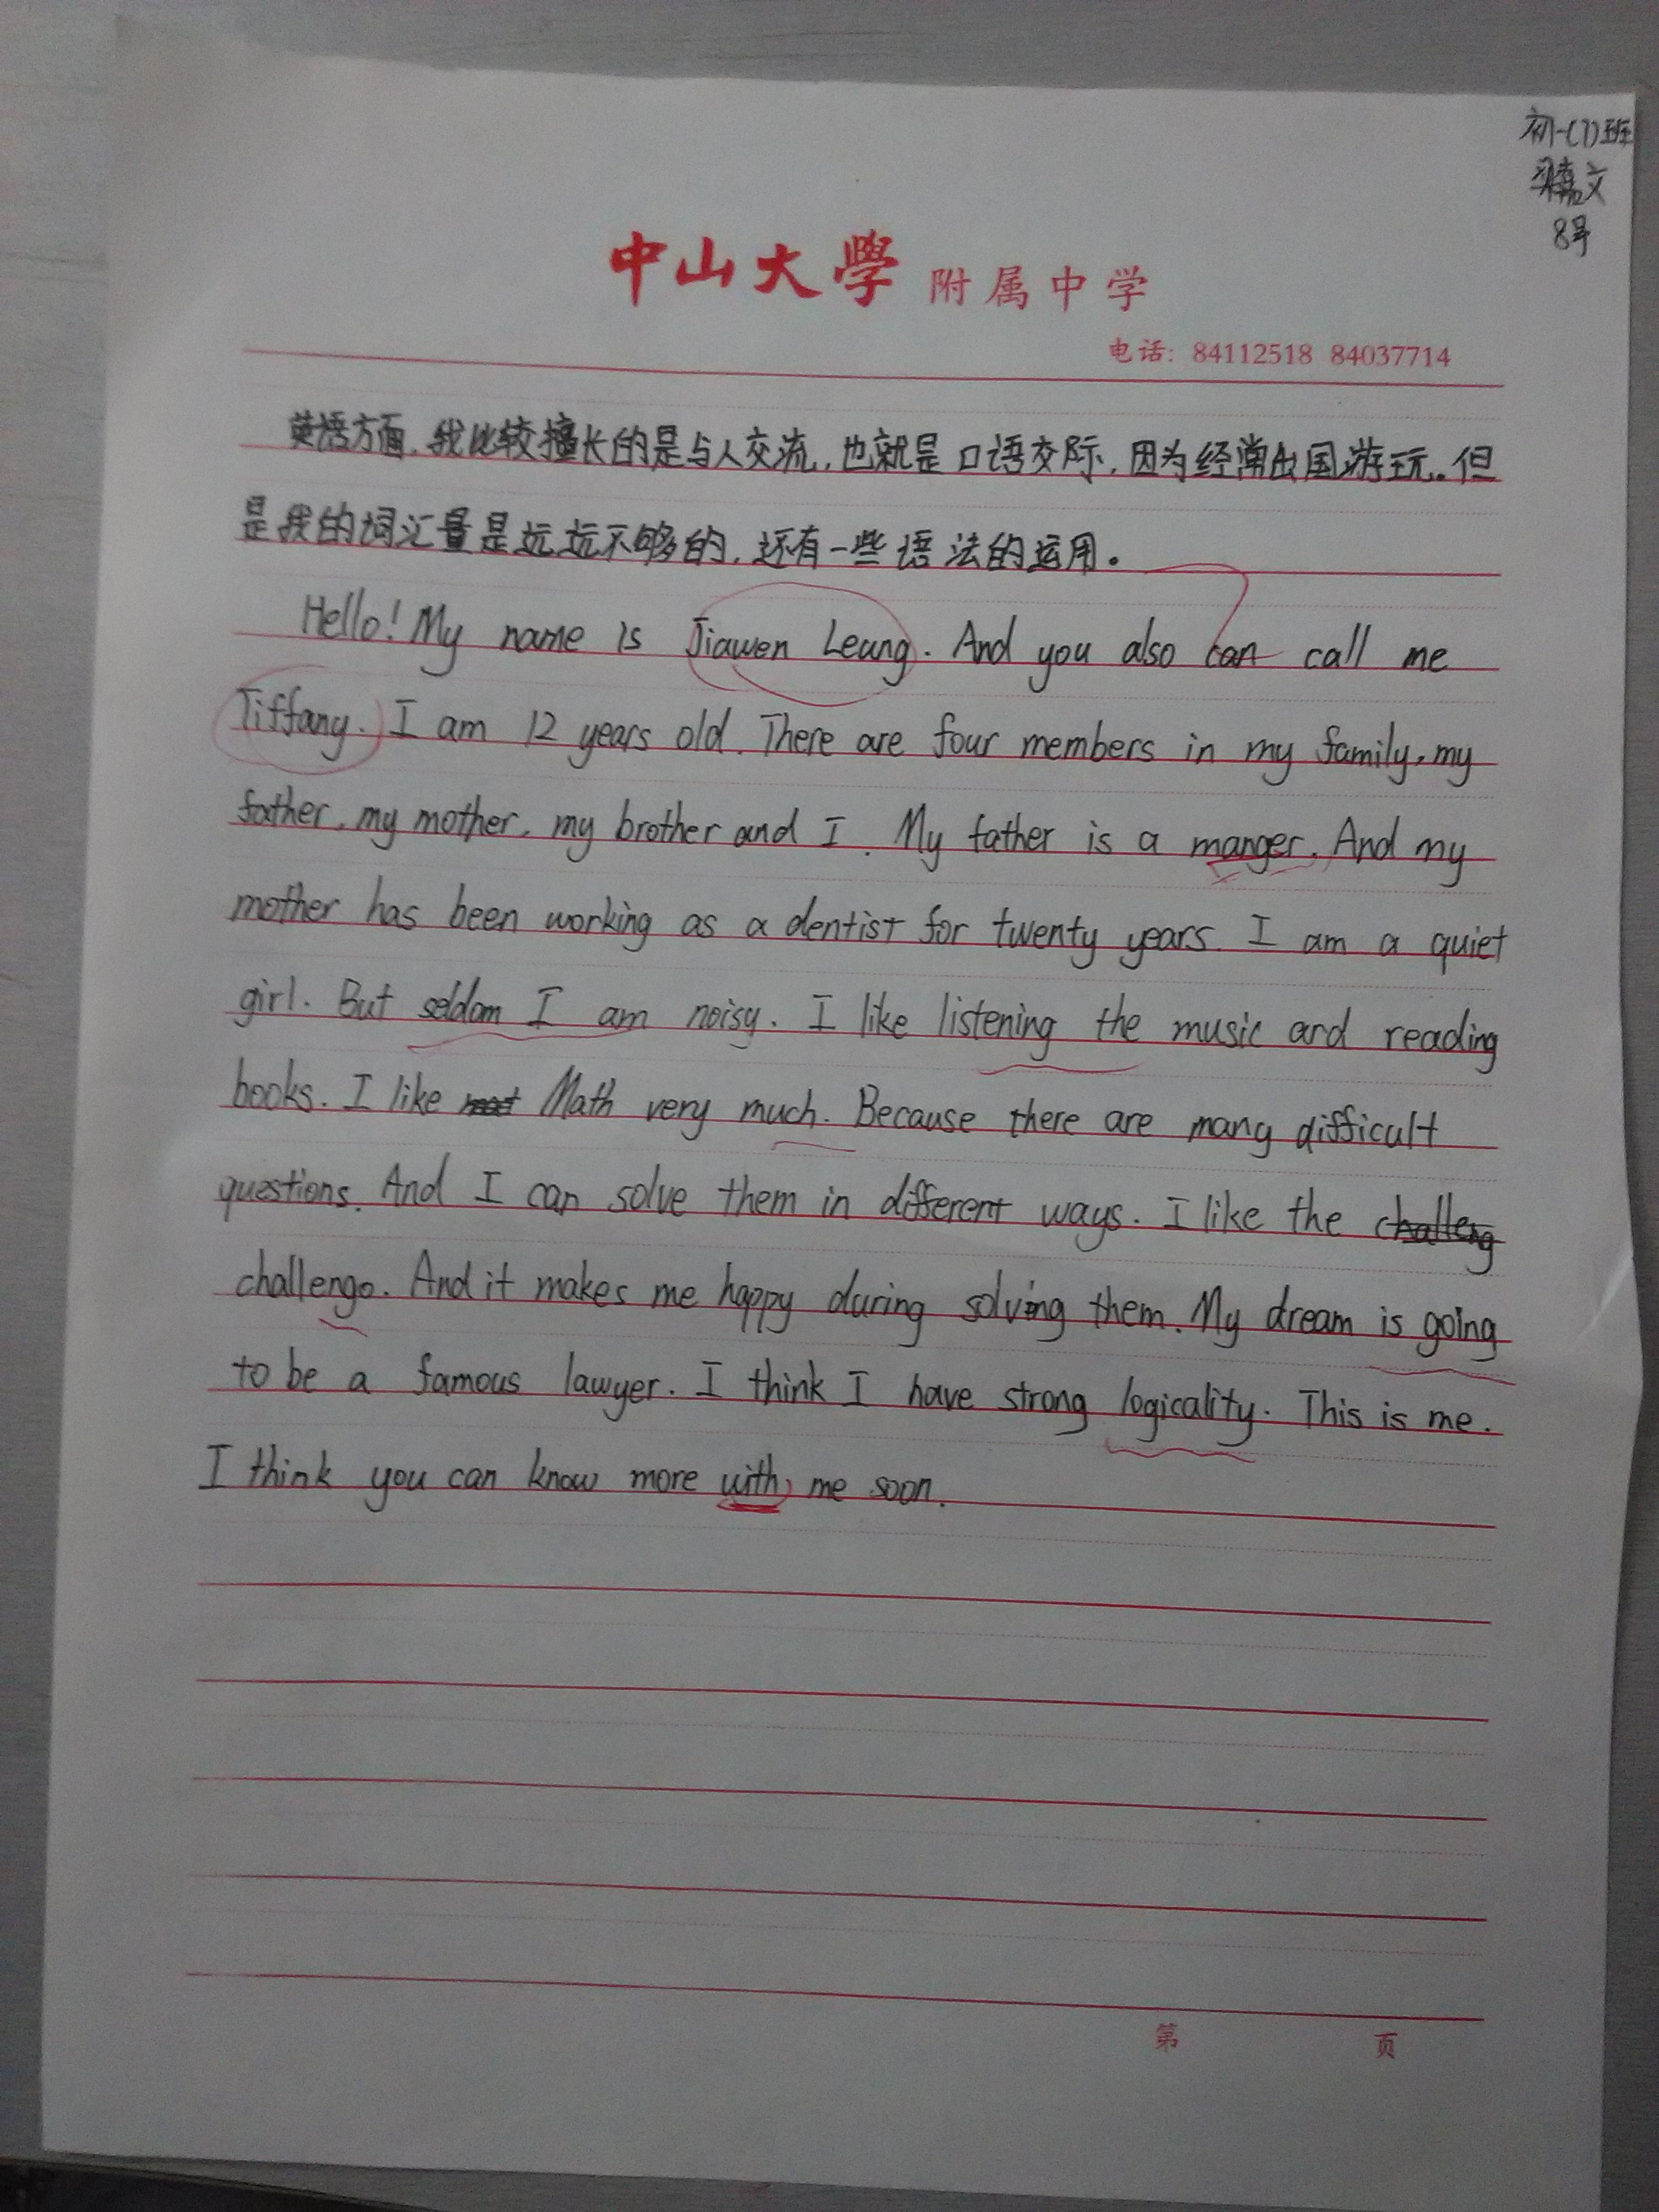 初一(7)班
梁嘉文
8号
中山大學 附属中学
电话: 84112518 84037714
英语方面,我比较擅长的是与人交流,也就是口语交际,因为经常出国游玩。但
是我的词汇量是远远不够的,还有一些语法的运用。
Hello! My name is Jiawen Leung. And you also can call me
Tiffany. I am 12 years old. There are four members in my family, my
father, my mother, my brother and I. My father is a manger. And my
mother has been working as a dentist for twenty years. I am a quiet
girl. But seldom I am noisy. I like listening the music and reading
books. I like Math very much. Because there are many difficult
questions. And I can solve them in different ways. I like the challeng
challenge. And it makes me happy during solving them. My dream is going
to be a famous lawyer. I think I have strong logicality. This is me.
I think you can know more with me soon.
第 页